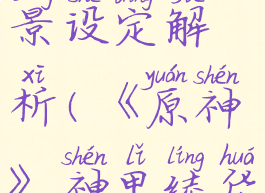 景设定解
xī yuán shén
析(《原神
shén lǐ líng huá
》神里绫华